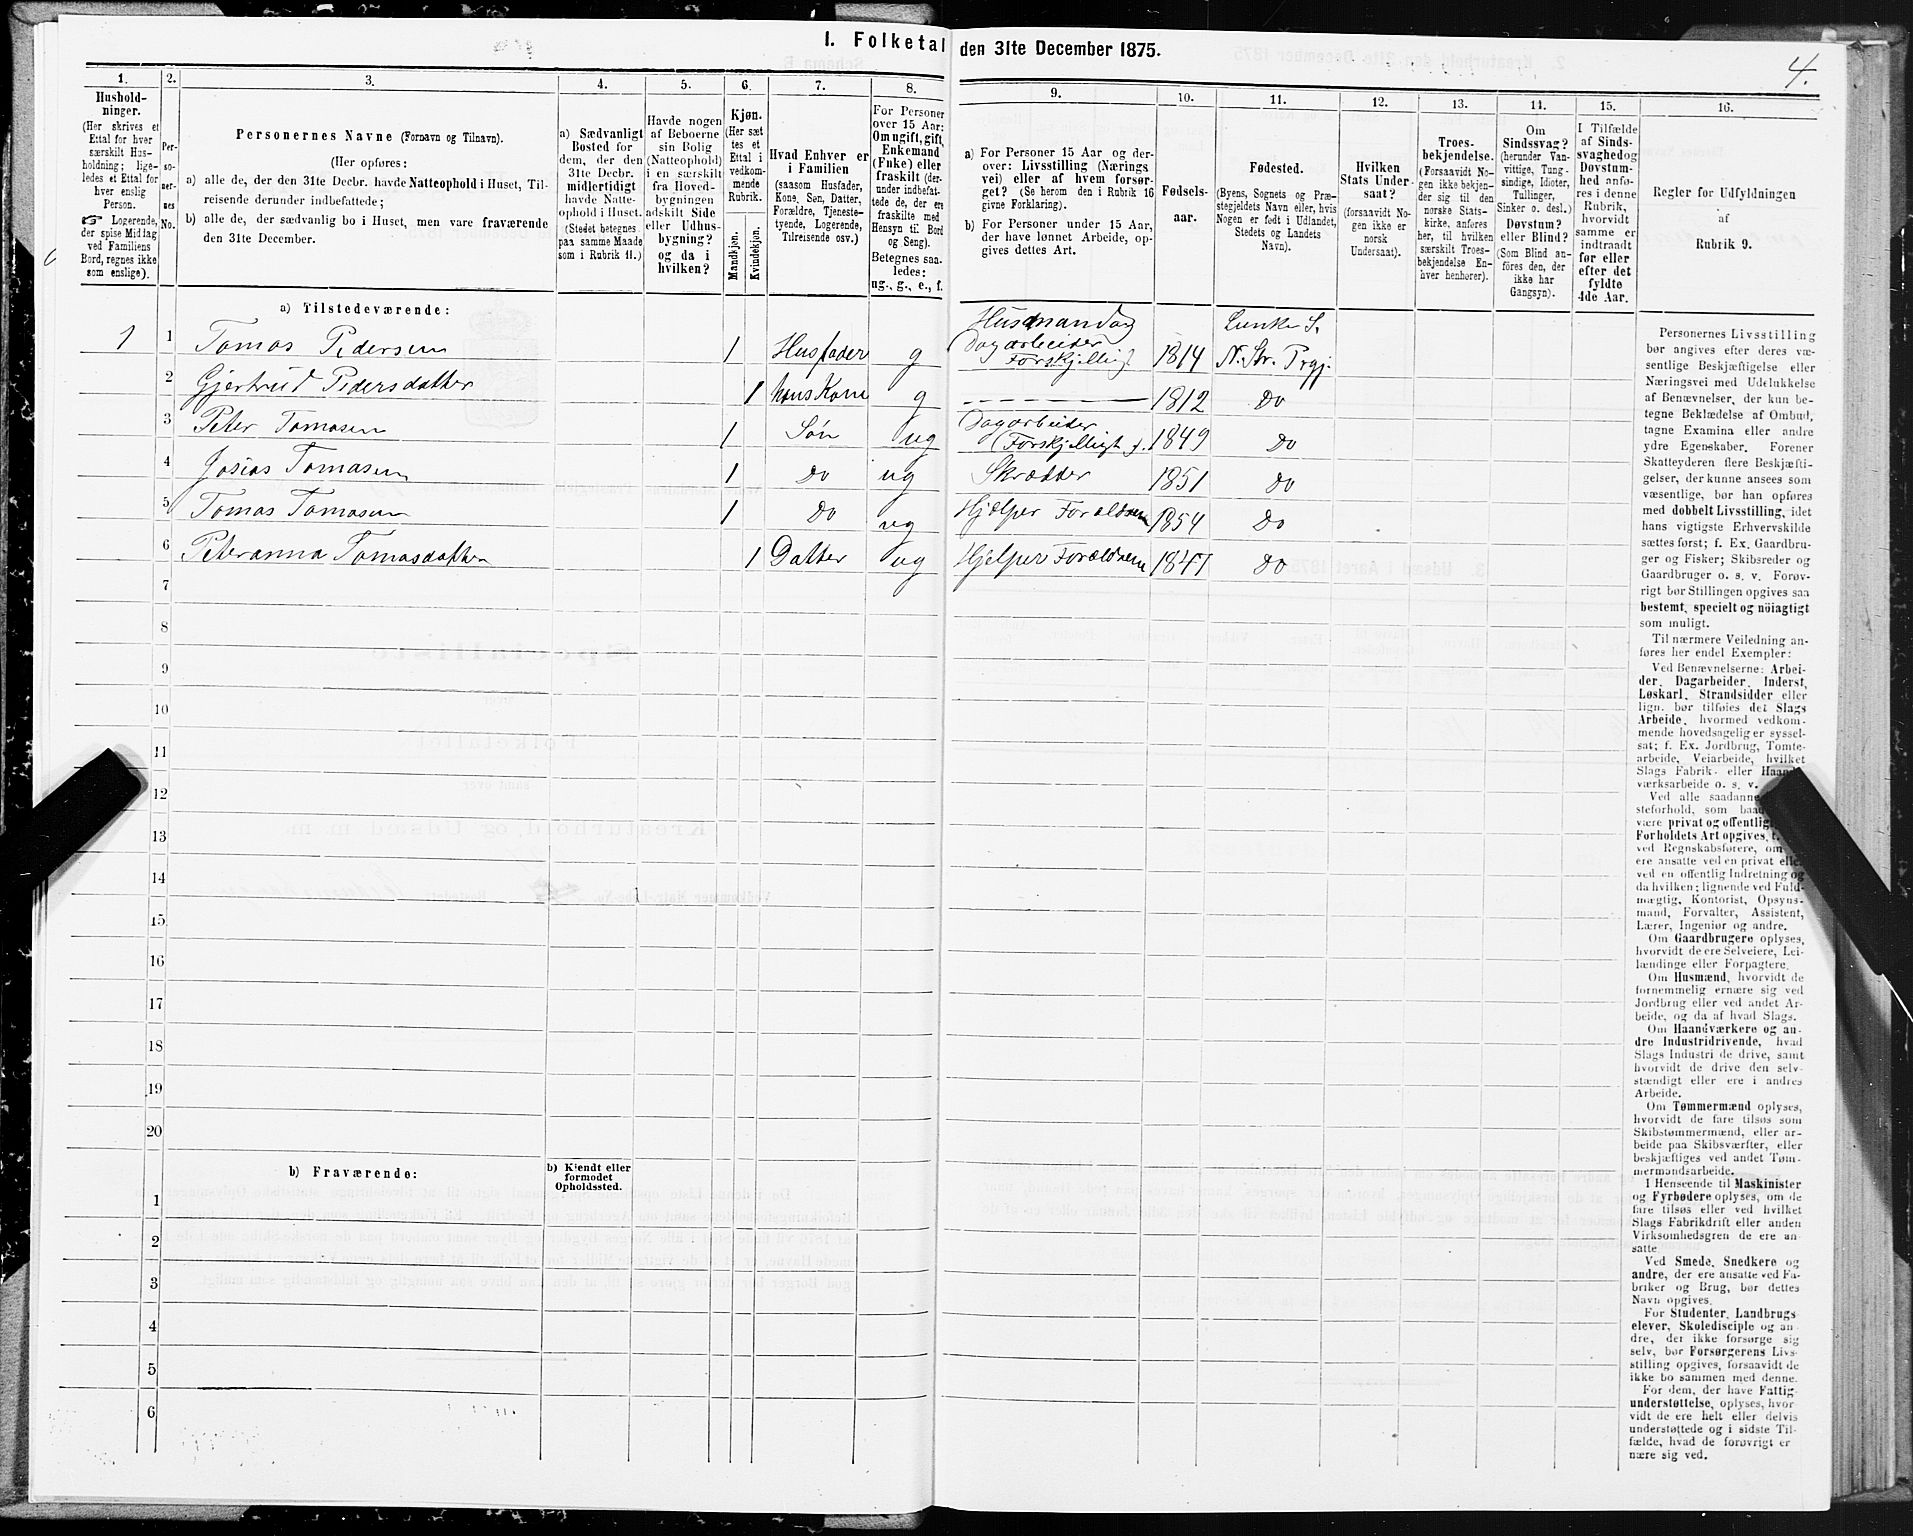 I. Folketal den 31te December 1875.
4.
1.
Hushold-
ninger.
(Her skrives et
Ettal for hver
særskilt Hus-
holdning; lige-
ledes et Ettal for
hver enslig
Person.
☞ Logerende,
der spise Middag
ved Familiens
Bord, regnes ikke
som enslige).
2.
Per-
so-
ner-
nes
No.
3.
Personernes Navne (Fornavn og Tilnavn).
(Her opføres:
a) alle de, der den 31te Decbr. havde Natteophold i Huset, Til-
reisende derunder indbefattede;
b) alle de, der sædvanlig bo i Huset, men vare fraværende
den 31te December.
4.
a) Sædvanligt
Bosted for
dem, der den
31te Decbr.
midlertidigt
havde Natte-
ophold i Huset.
(Stedet betegnes
paa samme Maade
som i Rubrik 11.)
5.
Havde nogen
af Beboerne
sin Bolig
(Natteophold)
i en særskilt
fra Hoved-
bygningen
adskilt Side
eller Udhus-
bygning?
og da i
hvilken?
6.
Kjøn.
(Her sæt
tes et
Ettal i
vedkom-
mende
Rubrik.
Mandkjøn.
Kvindekjøn.
7.
Hvad Enhver er
i Familien
(saasom Husfader,
Kone, Søn, Datter,
Forældre, Tjeneste-
tyende, Logerende,
Tilreisende osv.)
8.
For Personer
over 15 Aar:
Om ugift, gift,
Enkemand
(Enke) eller
fraskilt (der-
under indbefat-
tede de, der ere
fraskilte med
Hensyn til Bord
og Seng).
Betegnes saa-
ledes:
ug., g., e., f.
9.
a) For Personer 15 Aar og der-
over: Livsstilling (Nærings
vei) eller af hvem forsør-
get? (Se herom den i Rubrik 16
givne Forklaring).
b) For Personer under 15 Aar,
der have lønnet Arbeide, op-
gives dettes Art.
10.
Fødsels-
aar.
11.
Fødested.
(Byens, Sognets og Præ-
stegjeldets Navn eller, hvis
Nogen er født i Udlandet,
Stedets og Landets
Navn).
12.
Hvilken
Stats Under-
saat?
(forsaavidt No-
gen ikke er
norsk
Undersaat).
13.
Troes-
bekjendelse.
(Forsaavidt No-
gen ikke bekjen-
der sig til den
norske Stats-
kirke, anføres
her, til hvilken
særskilt Troes-
bekjendelse En-
hver henhører).
14.
Om
Sindssvag?
(herunder Van-
vittige, Tung-
sindige, Idioter,
Tullinger,
Sinker o. desl.)
Døvstum?
eller Blind?
(Som Blind an-
føres den, der
ikke har
Gangsyn).
15.
I Tilfælde
af Sinds-
svaghed og
Døvstum-
hed anfø-
res i denne
Rubrik,
hvorvidt
samme er
indtraadt
før eller
efter det
fyldte
4de Aar.
16.
Regler for Udfyldningen
af
Rubrik 9.
a) Tilstedeværende:
1 1 Tomas Pedersen 1 Husfader g Husmand og Dagarbeider Forskjelligt 1814 N. Str. Prgj.
2 Gjertrud Pedersdatter 1 hans Kone g 1812 Do
3 Peter Tomasen 1 Søn ug Dagarbeider (Forskjelligt 1849 Do
4 Josias Tomasen 1 Do ug Skrædder 1851 Do
5 Tomas Tomasen 1 Do ug Hjælper Forældrene 1854 Do
6 Peteranna Tomasdatter 1 Datter ug Hjelper Forældrene 1847 Do
7
8
9
10
11
12
13
14
15
16
17
18
19
20
b) Fraværende:
b) Kjendt eller
formodet
Opholdssted.
1
2
3
4
5
6
Personernes Livsstilling
bør angives efter deres væ-
sentlige Beskjæftigelse eller
Næringsvei med Udelukkelse
af Benævnelser, der kun be-
tegne Beklædelse af Ombud,
tagne Examina eller andre
ydre Egenskaber. Forener
Skatteyderen flere Beskjæfti-
gelser, der kunne ansees som
væsentlige, bør han opføres
med dobbelt Livsstilling, idet
hans vigtigste Erhvervskilde
sættes først; f. Ex. Gaardbru-
ger og Fisker; Skibsreder og
Gaardbruger o. s. v. Forøv-
rigt bør Stillingen opgives saa
bestemt, specielt og nöiagtigt
som muligt.
Til nærmere Veiledning an-
føres her endel Exempler:
Ved Benævnelserne: Arbei-
der, Dagarbeider, Inderst,
Løskarl, Strandsidder eller
lign. bør tilføies det Slags
Arbeide, hvormed vedkom-
mende hovedsagelig er syssel-
sat; f. Ex. Jordbrug, Tomte-
arbeide, Veiarbeide, hvilket
Slags Fabrik- eller Haand-
værksarbeide o. s. v.
Ved alle saadanne
steforhold, som baa
være privat og offentlig
Forholdets Art opgives,
ved Regnskabsførere, om
ere ansatte ved en privat eller
ved en offentlig Indretning og
da hvilken; lignende ved Fuld-
mægtig, Kontorist, Opsyns-
mand, Forvalter, Assistent,
Lærer, Ingeniør og andre.
Om Gaardbrugere oplyses,
hvorvidt de ere Selveiere, Lei-
lændinge eller Forpagtere.
Om Husmænd, hvorvidt de
fornemmelig ernære sig ved
Jordbrug eller ved andet Ar-
beide, og da af hvad Slags.
Om Haandværkere og an-
dre Industridrivende, hvad
Slags Industri de drive, samt
hvorvidt de drive den selv-
stændigt eller ere i andres
Arbeide.
Om Tømmermænd oplyses,
hvorvidt de fare tilsøs som
Skibstømmermænd, eller ar-
beide paa Skibsværfter, eller
beskjæftiges ved andet Tøm-
mermandsarbeide.
I Henseende til Maskinister
og Fyrbødere oplyses, om de
fare tilsøs eller ved hvilket
Slags Fabrikdrift eller anden
Virksomhedsgren de ere an-
satte
Ved Smede, Snedkere og
andre, der ere ansatte ved Fa-
briker og Brug, bør dettes
Navn opgives.
For Studenter, Landbrugs
elever, Skoledisciple og an-
dre, der ikke forsørge sig
selv, bør Forsørgerens Livs-
stilling opgives, forsaavidt de
ikke bo sammen med denne.
For dem, der have Fattig-
understøttelse, oplyses, hvor-
vidt de ere helt eller delvis
understøttede og i sidste Til-
fælde, hvad de forøvrigt er
nære sig ved.